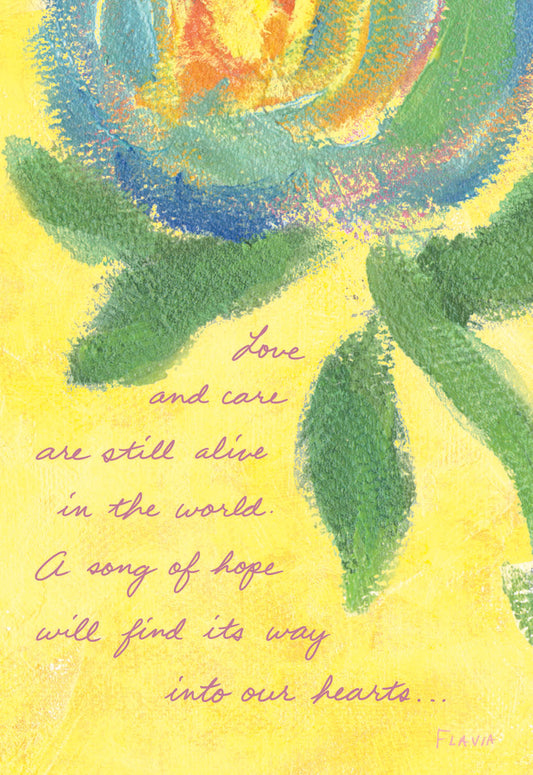 Love
and care
are still alive
in the world.
A song of hope
will find its way
into our hearts...
FLAVIA